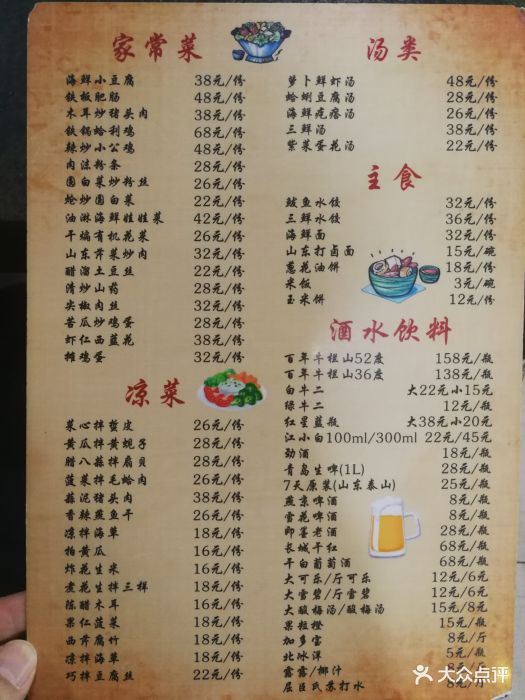 家常菜
海鲜小豆腐 38元/份
铁板肥肠 48元/份
木耳炒猪头肉 38元/份
铁锅蛤利鸡 68元/份
辣炒小公鸡 48元/份
肉沫粉条 28元/份
圆白菜炒粉丝 26元/份
蛤炒芹菜 22元/份
油淋海鲜娃娃菜 42元/份
干煸有机花菜 26元/份
山东芹菜炒肉 32元/份
醋溜土豆丝 22元/份
清炒山药 28元/份
尖椒肉丝 32元/份
苦瓜炒鸡蛋 28元/份
虾仁西蓝花 38元/份
摊鸡蛋 32元/份
凉菜
菜心拌蜇皮 26元/份
黄瓜拌黄蚬子 28元/份
腊八蒜拌扇贝 28元/份
菠菜拌毛蛤肉 26元/份
蒜泥猪头肉 38元/份
香辣鱼干 26元/份
凉拌海草 18元/份
拍黄瓜 16元/份
炸花生米 16元/份
煮花生拌三样 18元/份
陈醋木耳 16元/份
果仁菠菜 18元/份
西芹腐竹 18元/份
凉拌海草 18元/份
巧拌豆腐丝 22元/份
汤类
萝卜鲜虾汤 48元/份
蛤蜊豆腐汤 28元/份
海鲜疙瘩汤 26元/份
三鲜汤 38元/份
紫菜蛋花汤 22元/份
主食
鲅鱼水饺 32元/份
三鲜水饺 36元/份
海鲜面 32元/份
山东打卤面 15元/碗
葱花油饼 18元/份
米饭 3元/碗
玉米饼 12元/份
酒水饮料
百年牛栏山52度 158元/瓶
百年牛栏山36度 138元/瓶
白牛二 大22元小15元
绿牛二 12元/瓶
红星蓝瓶 大38元小20元
江小白100ml/300ml 22元/45元
劲酒 18元/瓶
青岛生啤(1L) 28元/瓶
7天原装(山东泰山) 25元/瓶
燕京啤酒 8元/瓶
雪花啤酒 8元/瓶
即墨老酒 28元/瓶
长城干红 68元/瓶
干白葡萄酒 68元/瓶
大可乐/听可乐 12元/6元
大雪碧/听雪碧 12元/6元
大酸梅汤/酸梅汤 15元/8元
果粒橙 15元/瓶
加多宝 8元/斤
北冰洋 5元/瓶
露露/椰汁 8元/
屈臣氏苏打水 8元/
大众点评